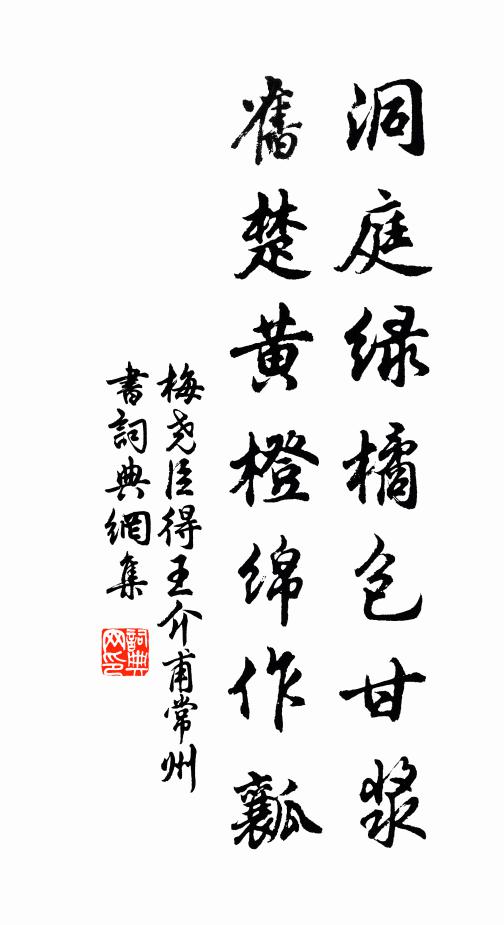 洞庭绿橘包甘浆
旧楚黄橙绵作瓤
梅尧臣得王介甫常州
书词典網集
詞典网印